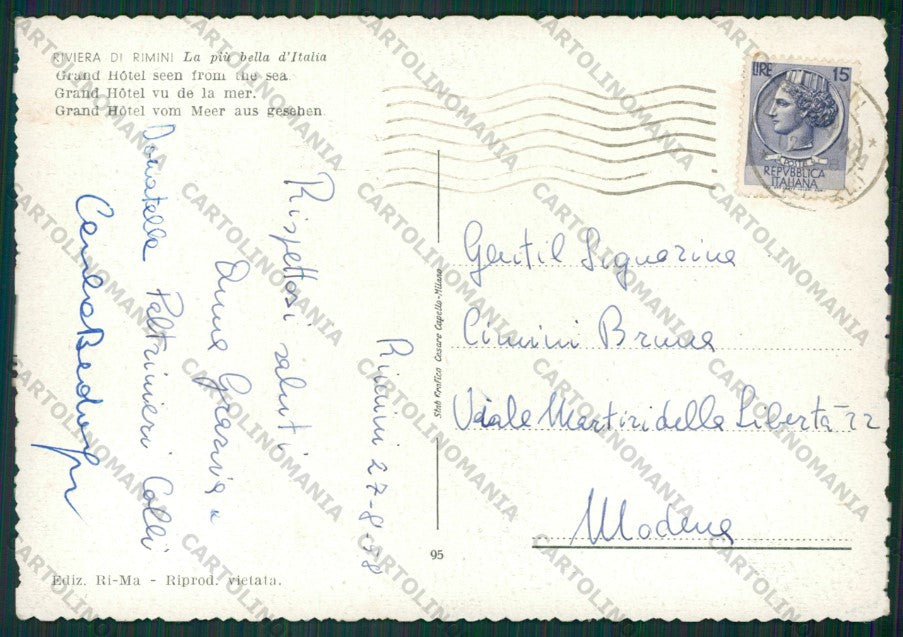 RIVIERA DI RIMINI La più bella d'Italia
Grand Hôtel seen from the sea.
Grand Hôtel vu de la mer.
Grand Hôtel vom Meer aus gesehen.
LIRE 15
POSTE
REPVBBLICA
ITALIANA
Rimini 27-8-58
Rispettosi saluti
Anna Grazia
Donatella Paltrinieri Colli
Carla
Stab. Grafico Cesare Capello-Milano
Gentil Signorina
Cimini Bruna
Viale Martiri della Libertà 22
Modena
95
Ediz. Ri-Ma - Riprod. vietata.
CARTOLINOMANIA